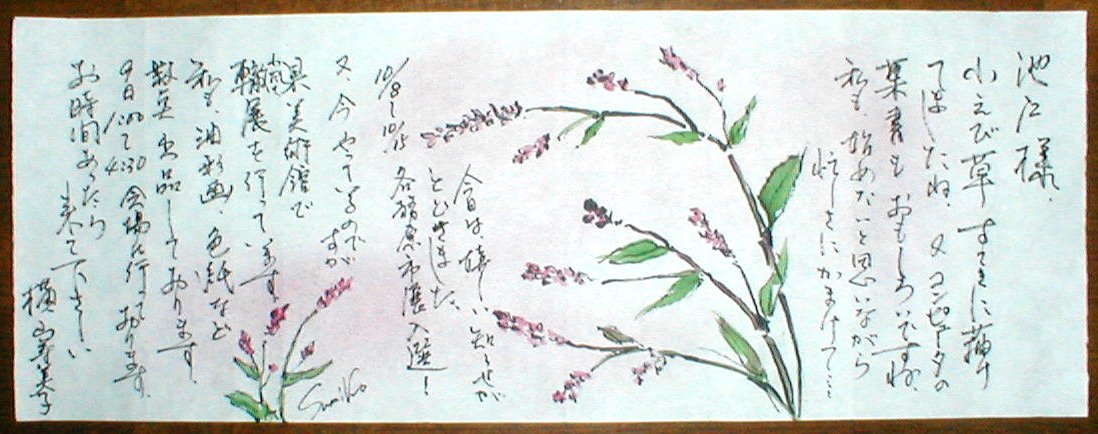 池江様、
小えび草 すてきに描け
てましたね、又コンピュータの
葉書もおもしろいですね、
私も、始めたいと思いながら
忙しさにかまけて…
今日は嬉しい知らせが
とどきました、
10/8〜10/15 各務原市展入選！
又、今やっているのですが
県美術館で
轍展を行っています
私も、油彩画、色紙など
数点出品しております、
9日 1:00〜4:30 会場に行っております、
お時間あったら
来て下さい
横山寿美子
Sumiko